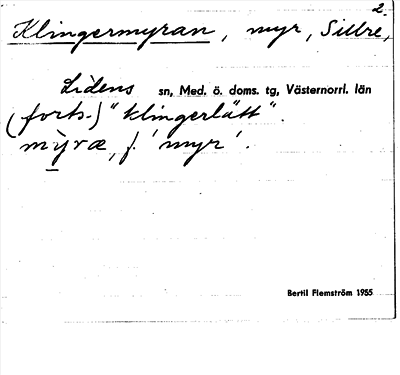 2.
Klingermyran, myr, Sillre,
Lidens sn, Med. ö. doms. tg, Västernorrl. län
(forts.) "klingerlätt".
mỳræ, f. 'myr'.
Bertil Flemström 1955